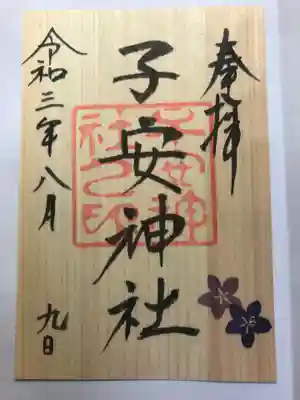 奉拝
子安神社
子安神社之印
令和三年八月
九日